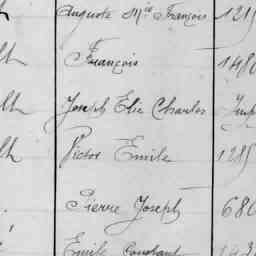 Auguste Mie François 121
François 148
lh Joseph Elie Charles Imp
lh Victor Emile 1285
Pierre Joseph 680
Emile Constant 143